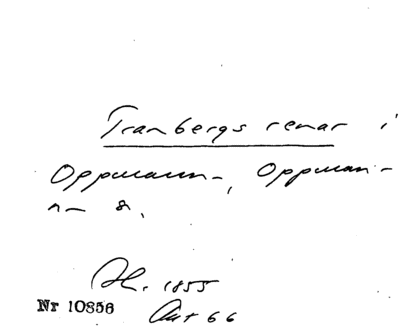 Tranbergs renar i
Oppmann-, Oppman-
n- s.
Ak. 1855
Nr 10856 Akt 66